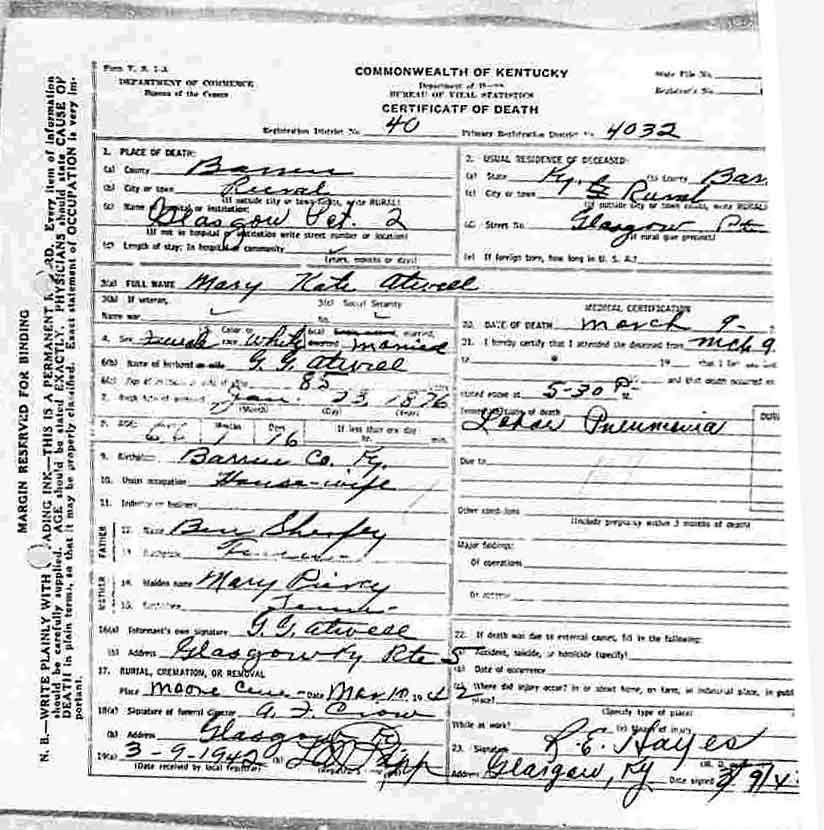 MARGIN RESERVED FOR BINDING
N. B.—WRITE PLAINLY WITH ADING INK—THIS IS A PERMANENT RD. Every item of information
should be carefully supplied. AGE should be stated EXACTLY. PHYSICIANS should state CAUSE OF
DEATH in plain terms, so that it may be properly classified. Exact statement of OCCUPATION is very im-
portant.
Form V. S. 1-A
DEPARTMENT OF COMMERCE
Bureau of the Census
COMMONWEALTH OF KENTUCKY
Department of
BUREAU OF VITAL STATISTICS
CERTIFICATE OF DEATH
State File No.
Registrar's No.
Registration District No. 40
Primary Registration District No. 4032
1. PLACE OF DEATH:
(a) County Barren
(b) City or town Rural
(If outside city or town limits, write RURAL)
(c) Name of hospital or institution:
Glasgow Pct. 2
(If not in hospital or institution write street number or location)
(d) Length of stay: In hospital or community
(years, months or days)
2. USUAL RESIDENCE OF DECEASED:
(a) State Ky. (b) County Bar
(c) City or town Rural
(If outside city or town limits, write RURAL)
(d) Street No. Glasgow Rte
(If rural give precinct)
(e) If foreign born, how long in U. S. A.?
3(a) FULL NAME Mary Kate Atwell
3(b) If veteran,
Name war
3(c) Social Security
No.
4. Sex Female Color or race White 6(a) married, married
6(b) Name of husband or wife G. G. Atwell
82
7. Birth date of deceased Jan. 23 1876
(Month) (Day) (Year)
8. AGE: 66 Months 1 Days 16 If less than one day
hr. min.
9. Birthplace Barren Co. Ky.
10. Usual occupation House-wife
11. Industry or business
FATHER
12. Name Ben Sherfey
13. Birthplace Tenn-
MOTHER
14. Maiden name Mary Piercy
15. Birthplace Tenn-
16(a) Informant's own signature G. G. Atwell
(b) Address Glasgow Ky Rte 5
17. BURIAL, CREMATION, OR REMOVAL
Place Moore Cem- Date Mar. 10 1942
18(a) Signature of funeral director A. F. Crow
(b) Address Glasgow Ky
19(a) 3-9-1942 (b)
(Date received by local registrar)
MEDICAL CERTIFICATION
20. DATE OF DEATH March 9-
21. I hereby certify that I attended the deceased from Mch 9
to 19 that I
and that death occurred on
stated above at 5-30 P.
Immediate cause of death
Lobar Pneumonia
Due to
Other conditions
(Include pregnancy within 3 months of death)
Major findings:
Of operations
Of autopsy
22. If death was due to external causes, fill in the following:
(a) Accident, suicide, or homicide (specify)
(b) Date of occurrence
(c) Where did injury occur? in or about home, on farm, in industrial place, in publ
place?
(Specify type of place)
While at work? (e) Means of injury
23. Signature R. E. Hayes
Address Glasgow, Ky Date signed 3/9/4